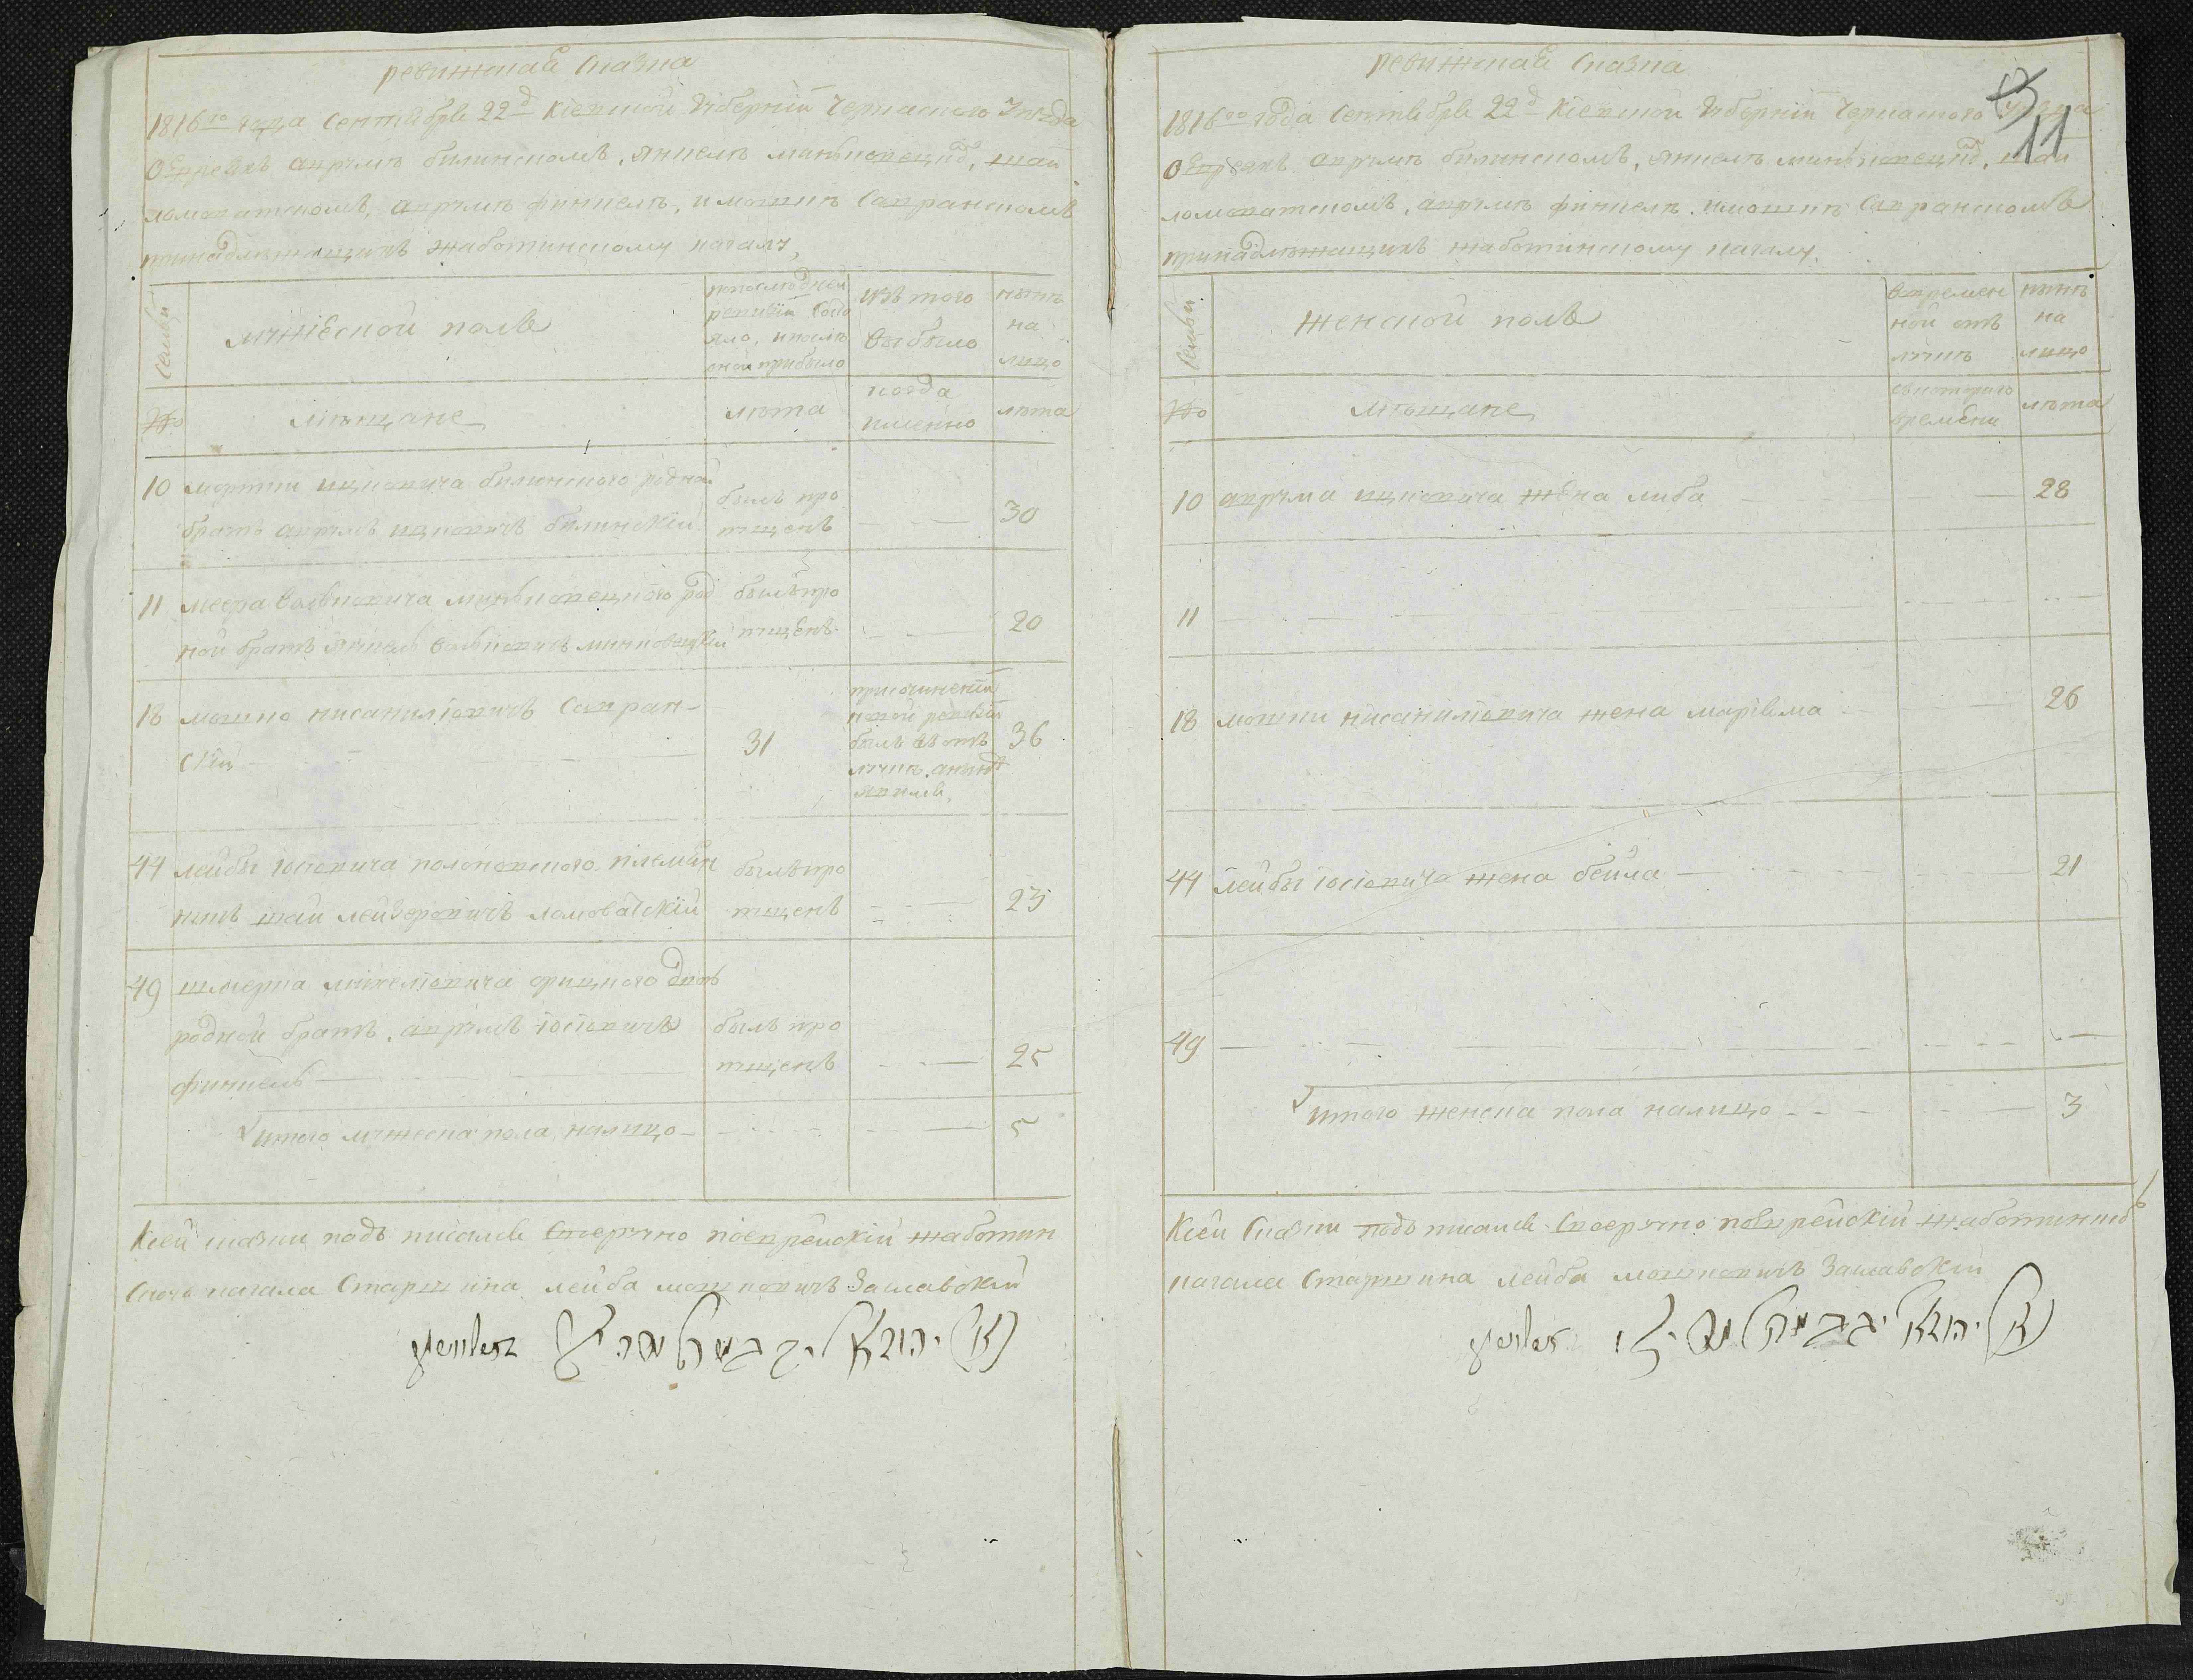 ревижская Сказка
1816го года Сентября 22д Кіевской Губерніи Черкаского Уезда
О Евреяхъ аврумѣ билинскомъ, янкелѣ миньковецкѡ, шаи
ломоватскомъ, аврумѣ финкелѣ, и мошкѣ Савранскомъ
принадлѣжащихъ жаботинскому кагалу,
Семьи
мужеской полъ
по послѣдней
ревизіи состо
яло, и послѣ
оной прибыло
изъ того
выбыло
нынѣ
на
лицо
№
мѣщане
лѣта
когда
именно
лѣта
10 мошки ицковича билинского родной
братъ аврумъ ицковичъ билинскій
былъ про
пущенъ
30
11 меера вольковича миньковецкого род
ной братъ янкель вольковичъ минковецкій
былъ про
пущенъ
20
18 мошко нисанилiовичъ Савран-
скій
31
при сочиненіи
новой ревизіи
былъ въ от
лучкѣ, а нынѣ
явился,
36
44 лейбы іосіовича полоновского племян
никъ шаи лейзеровичъ ломоватскій
былъ про
пущенъ
23
49 шмерка михеліовича фришного двою
родной братъ, аврумъ іосіовичъ
финкель
былъ про
пущенъ
25
итого мужеска пола налицо 5
К сей сказки подъ писался своеручно поеврейскій жаботин
ского кагала Старшина лейба мошковичъ Заславскій
ревижская Сказка
11
1816го года Сентября 22д Кіевской Губерніи Черкаского Уезда
О Евреяхъ аврумѣ билинскомъ, янкелѣ миньковецкѡ, шаи
ломоватскомъ, аврумѣ финкелѣ, и мошкѣ Савранскомъ
принадлѣжащихъ жаботинскому кагалу.
Семьи
женской полъ
Временной отъ
лучкѣ
нынѣ
на
лицо
№
мѣщане
съ котораго
времени
лѣта
10 аврума ицковича жена либа 28
11
18 мошки нисанилiовича жена марьяма 26
44 лейбы іосіовича жена бейла 21
49
итого женска пола налицо 3
К сей Сказки подъ писался своеручно поеврейскій жаботинско
кагала Старшина лейба мошковичъ Заславскій